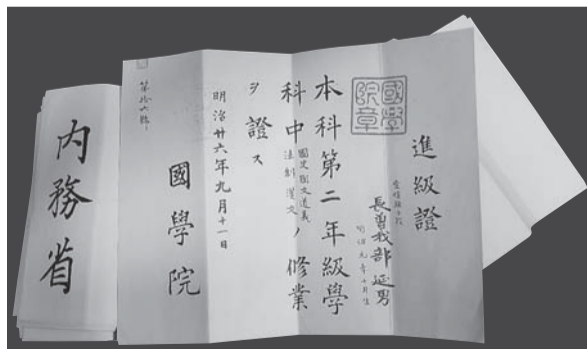 進級證
愛媛縣士族
長曽我部 延男
國學院章
本科第二年級學
科中國史國文道義法制漢文ノ修業
ヲ證ス
明治廿六年九月十一日
國學院
第拾六號
内務省